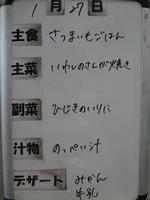 1月27日
主食 さつまいもごはん
主菜 いわしのさんが焼き
副菜 ひじきのいりに
汁物 のっぺい汁
デザート みかん
牛乳